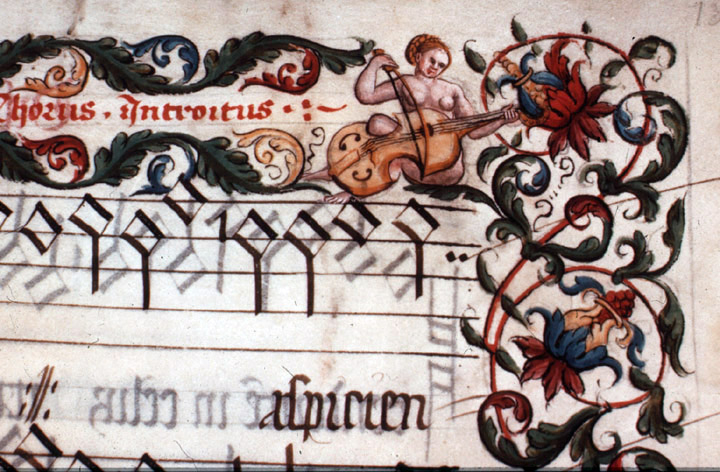 Chorus . Introitus . :~
aſpicien